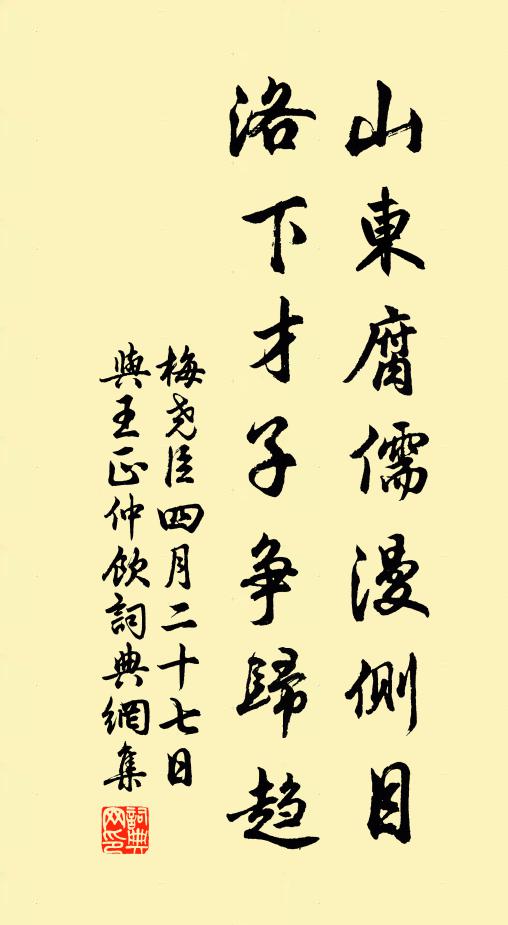 山東腐儒漫側目
洛下才子争歸趋
梅尧臣四月二十七日
與王正仲飲詞典網集
詞典
网印